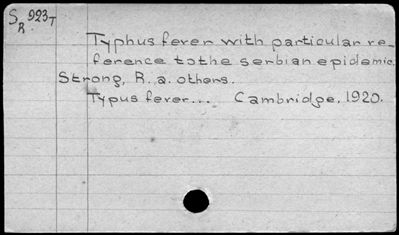 S 923T
R
Typhus fever with particular re-
ference to the serbian epidemic.
Strong, R. a. others.
Typus fever... Cambridge, 1920.